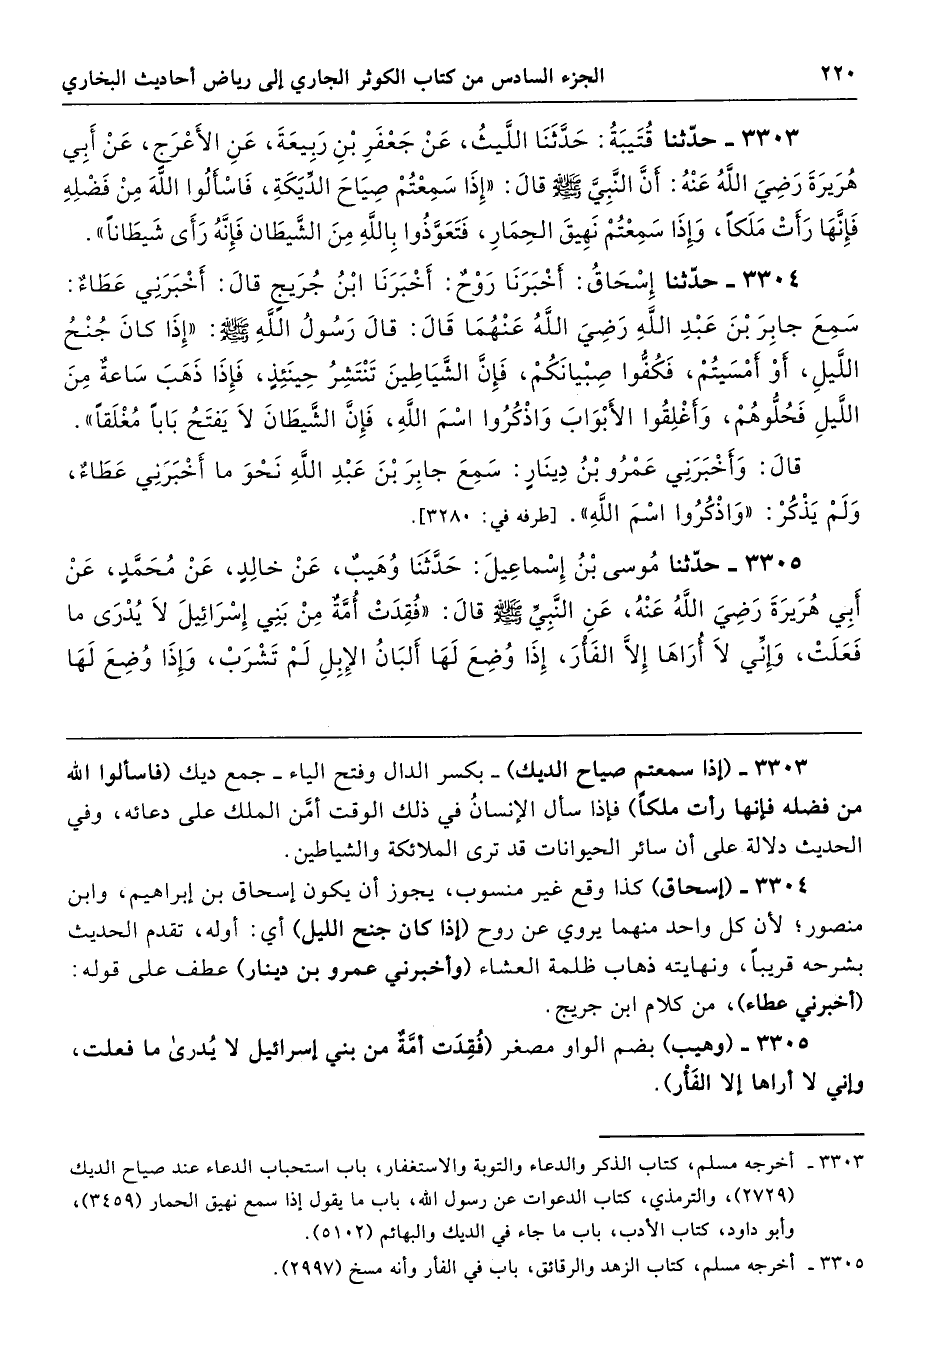 ٢٢٠ الجزء السادس من كتاب الكوثر الجاري إلى رياض أحاديث البخاري
٣٣٠٣ ـ حدّثنا قُتَيبَةُ: حَدَّثَنَا اللَّيثُ، عَنْ جَعْفَرِ بْنِ رَبِيعَةَ، عَنِ الأَعْرَجِ، عَنْ أَبِي
هُرَيرَةَ رَضِيَ اللَّهُ عَنْهُ: أَنَّ النَّبِيَّ ﷺ قالَ: «إِذَا سَمِعْتُمْ صِيَاحَ الدِّيَكَةِ، فَاسْأَلُوا اللَّهَ مِنْ فَضْلِهِ
فَإِنَّهَا رَأَتْ مَلَكاً، وَإِذَا سَمِعْتُمْ نَهِيقَ الحِمَارِ، فَتَعَوَّذُوا بِاللَّهِ مِنَ الشَّيطَان فَإِنَّهُ رَأَى شَيطَاناً».
٣٣٠٤ ـ حدّثنا إِسْحَاقُ: أَخْبَرَنَا رَوْحٌ: أَخْبَرَنَا ابْنُ جُرَيجٍ قالَ: أَخْبَرَنِي عَطَاءٌ:
سَمِعَ جابِرَ بْنَ عَبْدِ اللَّهِ رَضِيَ اللَّهُ عَنْهُمَا قَالَ: قالَ رَسُولُ اللَّهِ ﷺ: «إِذَا كانَ جُنْحُ
اللَّيلِ، أَوْ أَمْسَيتُمْ، فَكُفُّوا صِبْيَانَكُمْ، فَإِنَّ الشَّيَاطِينَ تَنْتَشِرُ حِينَئِذٍ، فَإِذَا ذَهَبَ سَاعةٌ مِنَ
اللَّيلِ فَحُلُّوهُمْ، وَأَغْلِقُوا الأَبْوَابَ وَاذْكُرُوا اسْمَ اللَّهِ، فَإِنَّ الشَّيطَانَ لاَ يَفتَحُ بَاباً مُغْلَقاً».
قالَ: وَأَخْبَرَنِي عَمْرُو بْنُ دِينَارٍ: سَمِعَ جابِرَ بْنَ عَبْدِ اللَّهِ نَحْوَ ما أَخْبَرَنِي عَطَاءٌ،
وَلَمْ يَذْكُرْ: «وَاذْكُرُوا اسْمَ اللَّهِ». [طرفه في: ٣٢٨٠].
٣٣٠٥ ـ حدّثنا مُوسى بْنُ إِسْماعِيلَ: حَدَّثَنَا وُهَيبٌ، عَنْ خالِدٍ، عَنْ مُحَمَّدٍ، عَنْ
أَبِي هُرَيرَةَ رَضِيَ اللَّهُ عَنْهُ، عَنِ النَّبِيِّ ﷺ قالَ: «فُقِدَتْ أُمَّةٌ مِنْ بَنِي إِسْرَائِيلَ لاَ يُدْرَى ما
فَعَلَتْ، وَإِنِّي لاَ أُرَاهَا إِلاَّ الفَأْرَ، إِذَا وُضِعَ لَهَا أَلبَانُ الإِبِلِ لَمْ تَشْرَبْ، وَإِذَا وُضِعَ لَهَا
٣٣٠٣ ـ (إذا سمعتم صياح الديك) ـ بكسر الدال وفتح الياء ـ جمع ديك (فاسألوا الله
من فضله فإنها رأت ملكاً) فإذا سأل الإنسانُ في ذلك الوقت أمَّن الملك على دعائه، وفي
الحديث دلالة على أن سائر الحيوانات قد ترى الملائكة والشياطين.
٣٣٠٤ ـ (إسحاق) كذا وقع غير منسوب، يجوز أن يكون إسحاق بن إبراهيم، وابن
منصور؛ لأن كل واحد منهما يروي عن روح (إذا كان جنح الليل) أي: أوله، تقدم الحديث
بشرحه قريباً، ونهايته ذهاب ظلمة العشاء (وأخبرني عمرو بن دينار) عطف على قوله:
(أخبرني عطاء)، من كلام ابن جريج.
٣٣٠٥ ـ (وهيب) بضم الواو مصغر (فُقِدَت أمَّةٌ من بني إسرائيل لا يُدرىٰ ما فعلت،
وإني لا أراها إلا الفَأْر).
٣٣٠٣ ـ أخرجه مسلم، كتاب الذكر والدعاء والتوبة والاستغفار، باب استحباب الدعاء عند صياح الديك
(٢٧٢٩)، والترمذي، كتاب الدعوات عن رسول الله، باب ما يقول إذا سمع نهيق الحمار (٣٤٥٩)،
وأبو داود، كتاب الأدب، باب ما جاء في الديك والبهائم (٥١٠٢).
٣٣٠٥ ـ أخرجه مسلم، كتاب الزهد والرقائق، باب في الفأر وأنه مسخ (٢٩٩٧).